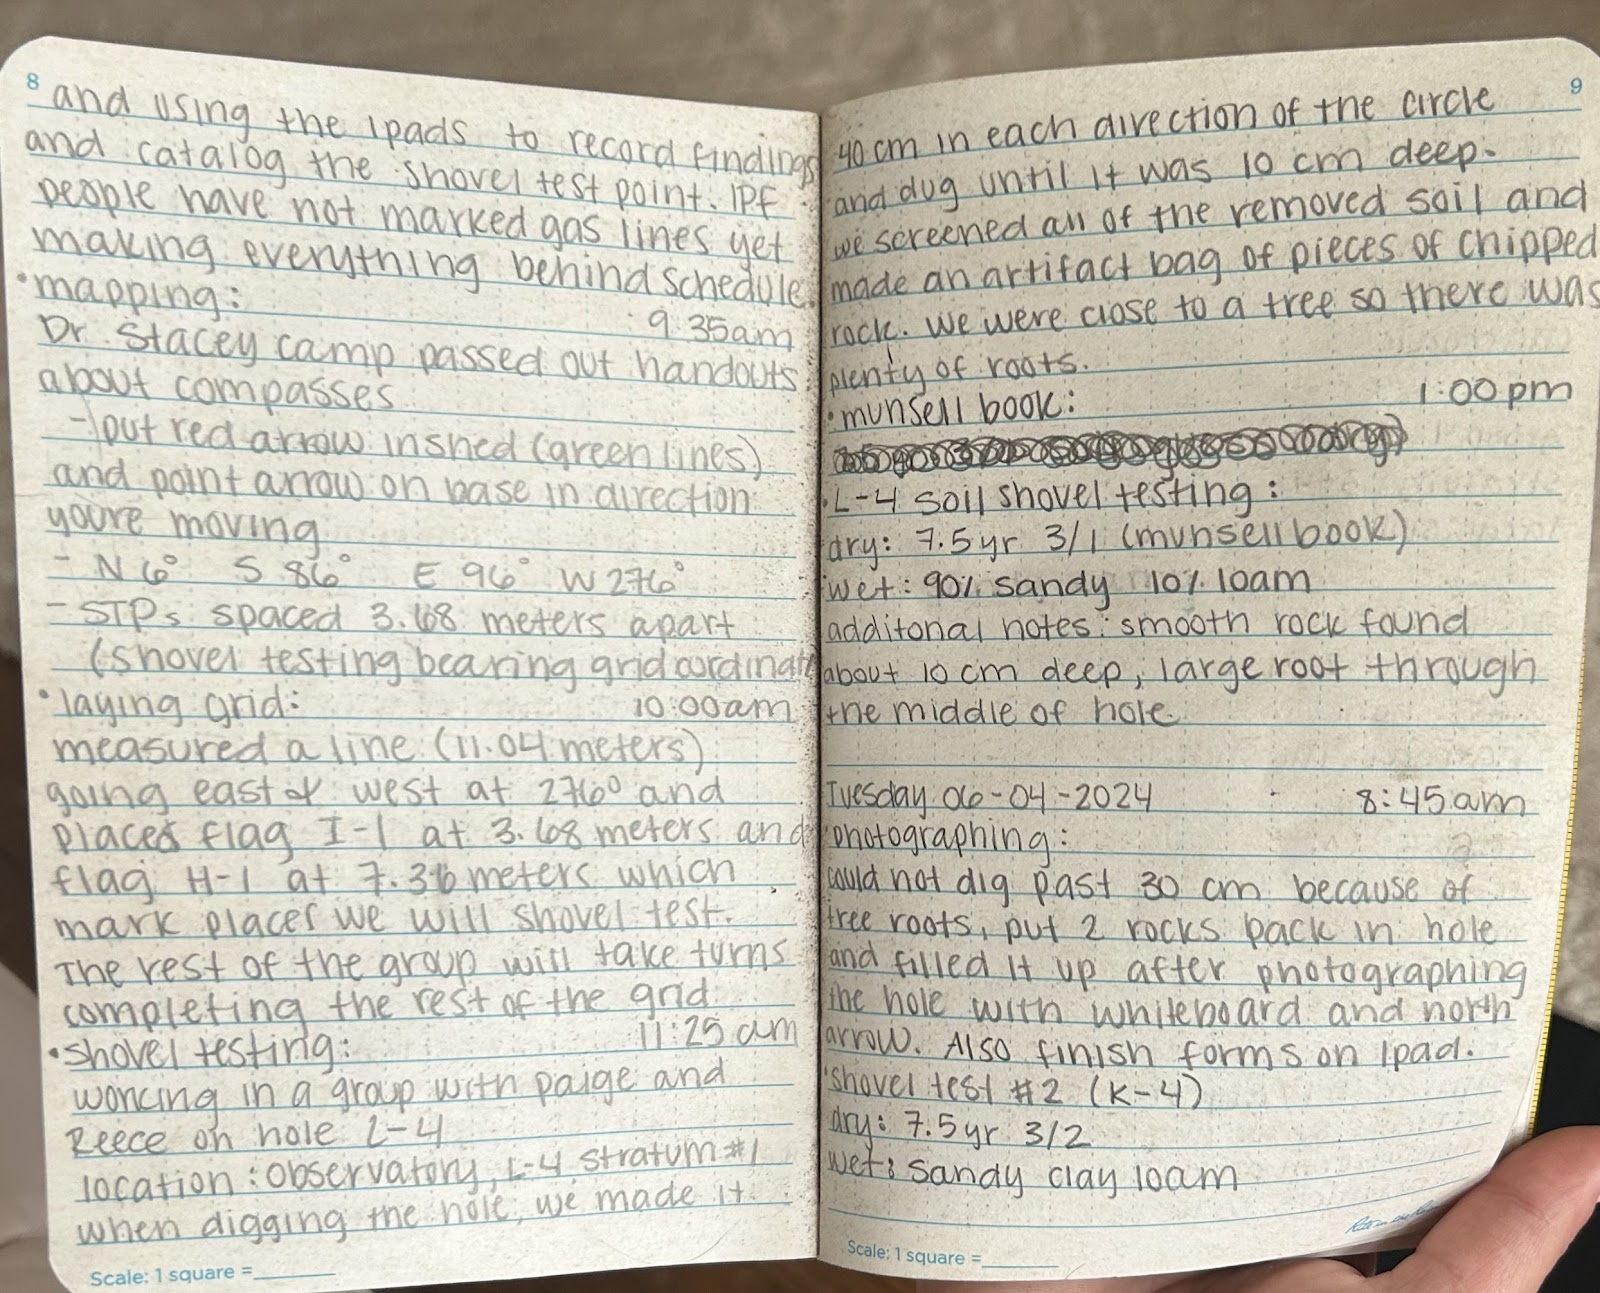 8
and using the ipads to record findings
and catalog the shovel test point. IPF
people have not marked gas lines yet
making everything behind schedule.
• mapping:
9:35am
Dr. Stacey camp passed out handouts
about compasses
- put red arrow in shed (green lines)
and point arrow on base in direction
youre moving
- N 6° S 86° E 96° W 276°
- STPs spaced 3.68 meters apart
(shovel testing bearing grid cordinate
• laying grid: 10:00am
measured a line (11.04 meters)
going east & west at 276° and
placed flag I-1 at 3.68 meters and
flag H-1 at 7.36 meters which
mark places we will shovel test.
The rest of the group will take turns
completing the rest of the grid
• shovel testing: 11:25 am
working in a group with paige and
Reece on hole L-4
location: Observatory, L-4 stratum #1
when digging the hole, we made it
Scale: 1 square =
9
40 cm in each direction of the circle
and dug until it was 10 cm deep.
we screened all of the removed soil and
made an artifact bag of pieces of chipped
rock. We were close to a tree so there was
plenty of roots.
• munsell book: 1:00 pm
• L-4 soil shovel testing:
dry: 7.5 yr 3/1 (munsell book)
wet: 90% sandy 10% loam
additonal notes: smooth rock found
about 10 cm deep, large root through
the middle of hole
Tuesday 06-04-2024 8:45 am
• photographing:
could not dig past 30 cm because of
tree roots, put 2 rocks back in hole
and filled it up after photographing
the hole with whiteboard and north
arrow. Also finish forms on ipad.
• shovel test #2 (K-4)
dry: 7.5 yr 3/2
wet: sandy clay loam
Scale: 1 square =